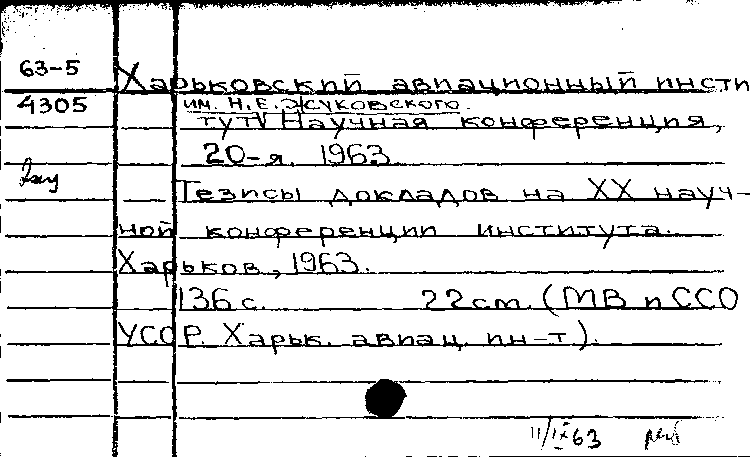 63-5 Харьковский авиационный инсти
4305 им. Н.Е. Жуковского.
тут. Научная конференция,
20-я. 1963.
Тезисы докладов на XX науч-
ной конференции института.
Харьков, 1963.
136 с. 22 см. (МВ и ССО
УССР. Харьк. авиац. ин-т).
11/IX 63